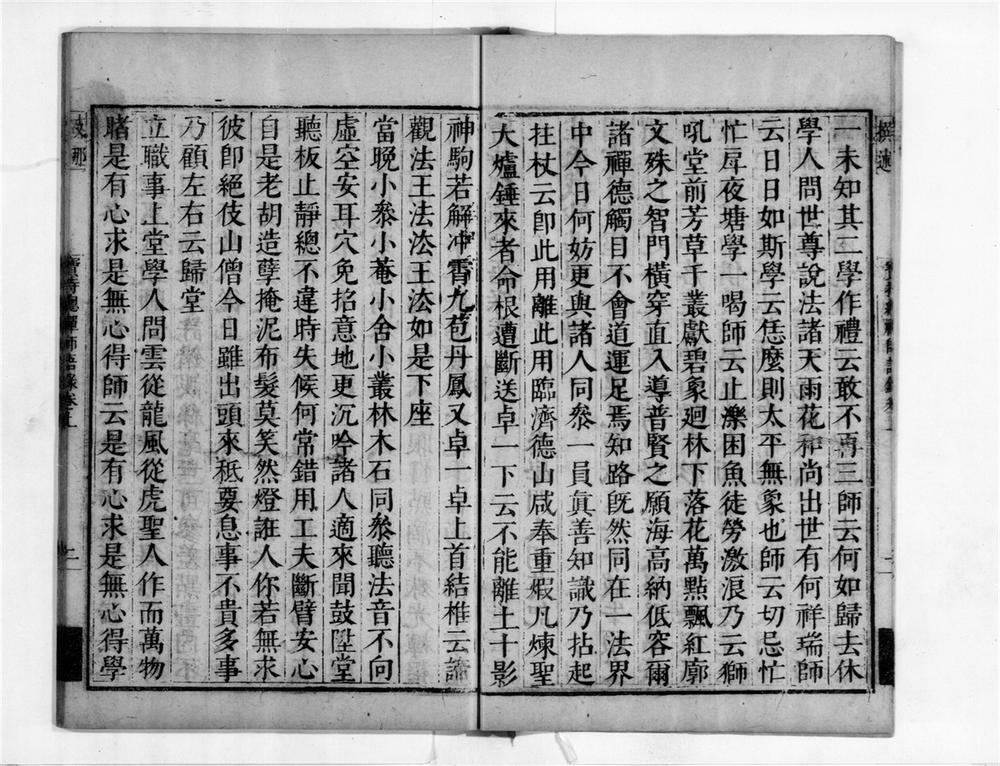 一未知其二學作禮云敢不再三師云何如歸去休
學人問世尊說法諸天雨花和尚出世有何祥瑞師
云日日如斯學云恁麼則太平無象也師云切忌忙
忙戽夜塘學一喝師云止濼困魚徒勞激浪乃云獅
吼堂前芳草千叢獻碧象廻林下落花萬點飄紅廓
文殊之智門橫穿直入導普賢之願海高納低容爾
諸禪德觸目不會道運足焉知路旣然同在一法界
中今日何妨更與諸人同叅一員眞善知識乃拈起
拄杖云卽此用離此用臨濟德山咸奉重煆凡煉聖
大爐錘來者命根遭斷送卓一下云不能離土十影
神駒若解冲霄九苞丹鳳又卓一卓上首結椎云諦
觀法王法法王法如是下座
當晚小叅小菴小舍小叢林木石同叅聽法音不向
虛空安耳穴免掐意地更沉吟諸人適來聞鼓陞堂
聽板止靜總不違時失候何常錯用工夫斷臂安心
自是老胡造孽掩泥布髮莫笑然燈誑人你若無求
彼卽絕伎山僧今日雖出頭來秪要息事不貴多事
乃顧左右云歸堂
立職事上堂學人問雲從龍風從虎聖人作而萬物
睹是有心求是無心得師云是有心求是無心得學